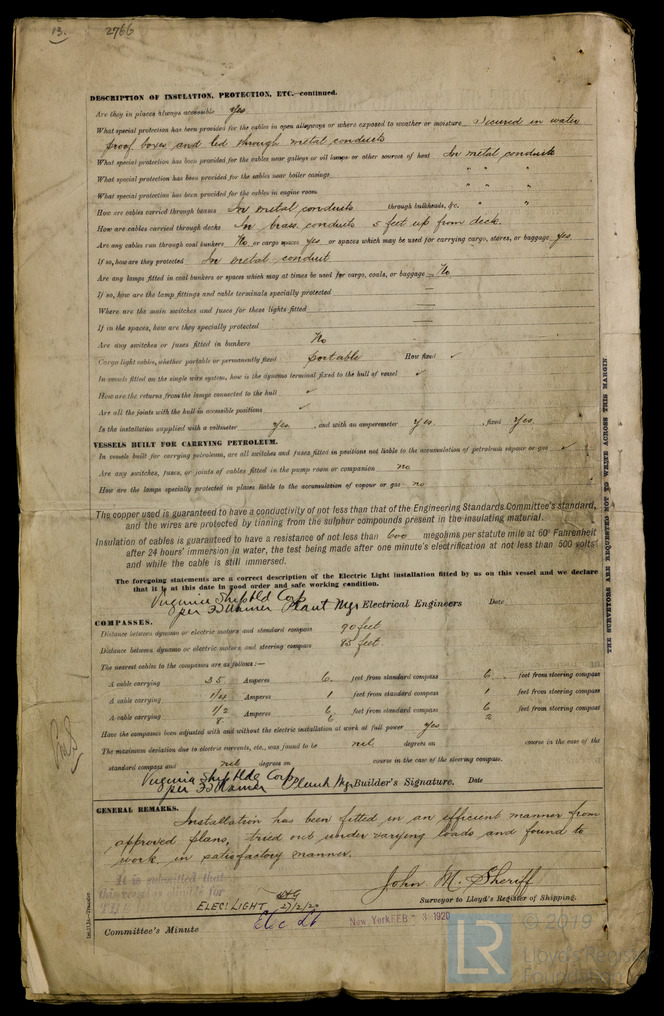 13. 2766
DESCRIPTION OF INSULATION, PROTECTION, ETC.—continued.
Are they in places always accessible Yes
What special protection has been provided for the cables in open alleyways or where exposed to weather or moisture Secured in water
proof boxes and led through metal conduits
What special protection has been provided for the cables near galleys or oil lamps or other sources of heat In metal conduits
What special protection has been provided for the cables near boiler casings " " "
What special protection has been provided for the cables in engine room " " "
How are cables carried through beams In metal conduits through bulkheads, &c. " "
How are cables carried through decks In brass conduits 5 feet up from deck.
Are any cables run through coal bunkers No or cargo spaces yes or spaces which may be used for carrying cargo, stores, or baggage yes
If so, how are they protected In metal conduit
Are any lamps fitted in coal bunkers or spaces which may at times be used for cargo, coals, or baggage No
If so, how are the lamp fittings and cable terminals specially protected —
Where are the main switches and fuses for these lights fitted —
If in the spaces, how are they specially protected —
Are any switches or fuses fitted in bunkers No
Cargo light cables, whether portable or permanently fixed portable How fixed ✓
In vessels fitted on the single wire system, how is the dynamo terminal fixed to the hull of vessel ✓
How are the returns from the lamps connected to the hull ✓
Are all the joints with the hull in accessible positions ✓
Is the installation supplied with a voltmeter yes. , and with an amperemeter yes. , fixed yes.
VESSELS BUILT FOR CARRYING PETROLEUM.
In vessels built for carrying petroleum, are all switches and fuses fitted in positions not liable to the accumulation of petroleum vapour or gas ✓
Are any switches, fuses, or joints of cables fitted in the pump room or companion no
How are the lamps specially protected in places liable to the accumulation of vapour or gas no
The copper used is guaranteed to have a conductivity of not less than that of the Engineering Standards Committee's standard,
and the wires are protected by tinning from the sulphur compounds present in the insulating material.
Insulation of cables is guaranteed to have a resistance of not less than 600 megohms per statute mile at 60° Fahrenheit
after 24 hours' immersion in water, the test being made after one minute's electrification at not less than 500 volts
and while the cable is still immersed.
The foregoing statements are a correct description of the Electric Light installation fitted by us on this vessel and we declare
that it is at this date in good order and safe working condition.
Virginia Ship Bld Corp
per Plant Mgr Electrical Engineers Date
COMPASSES.
Distance between dynamo or electric motors and standard compass 90 feet
Distance between dynamo or electric motors and steering compass 85 feet
The nearest cables to the compasses are as follows:—
A cable carrying 25 Amperes 6. feet from standard compass 6. feet from steering compass
A cable carrying 1/4 Amperes 1 feet from standard compass 1 feet from steering compass
A cable carrying 1/2 Amperes 6 feet from standard compass 6 feet from steering compass
Have the compasses been adjusted with and without the electric installation at work at full power yes
The maximum deviation due to electric currents, etc., was found to be nil degrees on course in the case of the
standard compass and nil degrees on course in the case of the steering compass.
Virginia Ship Bldg Corp
per Plant Mgr Builder's Signature. Date
GENERAL REMARKS.
Installation has been fitted in an efficient manner from
approved plans, tried out under varying loads and found to
work in satisfactory manner.
It is submitted that
this vessel is eligible for
THE
John M. Sheriff
Surveyor to Lloyd's Register of Shipping.
ELEC! LIGHT 27/2/20
Committee's Minute Elec Lt New York FEB 3 1920
THE SURVEYORS ARE REQUESTED NOT TO WRITE ACROSS THIS MARGIN
LR
© 2019
Lloyd's Register
Foundation